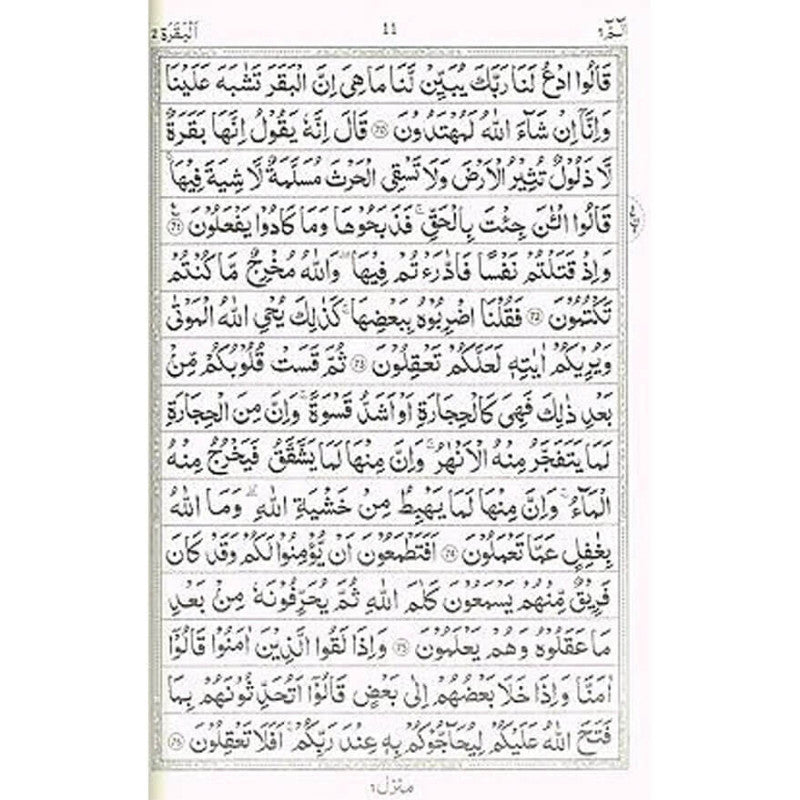 الٓمّٓ ١ 11 اَلْبَقَرَة ٢
قَالُوا ادْعُ لَنَا رَبَّكَ يُبَيِّنْ لَّنَا مَا هِىَ اِنَّ الْبَقَرَ تَشٰبَهَ عَلَيْنَا
وَاِنَّآ اِنْ شَآءَ اللّٰهُ لَمُهْتَدُوْنَ ﴿70﴾ قَالَ اِنَّهٗ يَقُوْلُ اِنَّهَا بَقَرَةٌ
لَّا ذَلُوْلٌ تُثِيْرُ الْاَرْضَ وَلَا تَسْقِى الْحَرْثَ مُسَلَّمَةٌ لَّا شِيَةَ فِيْهَا ؕ
قَالُوا الْـٰٔنَ جِئْتَ بِالْحَقِّ ؕ فَذَبَحُوْهَا وَمَا كَادُوْا يَفْعَلُوْنَ ﴿71﴾
وَاِذْ قَتَلْتُمْ نَفْسًا فَادّٰرَءْتُمْ فِيْهَا ؕ وَاللّٰهُ مُخْرِجٌ مَّا كُنْتُمْ
تَكْتُمُوْنَ ﴿72﴾ فَقُلْنَا اضْرِبُوْهُ بِبَعْضِهَا ؕ كَذٰلِكَ يُحْىِ اللّٰهُ الْمَوْتٰى
وَيُرِيْكُمْ اٰيٰتِهٖ لَعَلَّكُمْ تَعْقِلُوْنَ ﴿73﴾ ثُمَّ قَسَتْ قُلُوْبُكُمْ مِّنْۢ
بَعْدِ ذٰلِكَ فَهِىَ كَالْحِجَارَةِ اَوْ اَشَدُّ قَسْوَةً ؕ وَاِنَّ مِنَ الْحِجَارَةِ
لَمَا يَتَفَجَّرُ مِنْهُ الْاَنْهٰرُ ؕ وَاِنَّ مِنْهَا لَمَا يَشَّقَّقُ فَيَخْرُجُ مِنْهُ
الْمَآءُ ؕ وَاِنَّ مِنْهَا لَمَا يَهْبِطُ مِنْ خَشْيَةِ اللّٰهِ ؕ وَمَا اللّٰهُ
بِغَافِلٍ عَمَّا تَعْمَلُوْنَ ﴿74﴾ اَفَتَطْمَعُوْنَ اَنْ يُّؤْمِنُوْا لَكُمْ وَقَدْ كَانَ
فَرِيْقٌ مِّنْهُمْ يَسْمَعُوْنَ كَلٰمَ اللّٰهِ ثُمَّ يُحَرِّفُوْنَهٗ مِنْۢ بَعْدِ
مَا عَقَلُوْهُ وَهُمْ يَعْلَمُوْنَ ﴿75﴾ وَاِذَا لَقُوا الَّذِيْنَ اٰمَنُوْا قَالُوْٓا
اٰمَنَّا وَاِذَا خَلَا بَعْضُهُمْ اِلٰى بَعْضٍ قَالُوْٓا اَتُحَدِّثُوْنَهُمْ بِمَا
فَتَحَ اللّٰهُ عَلَيْكُمْ لِيُحَآجُّوْكُمْ بِهٖ عِنْدَ رَبِّكُمْ ؕ اَفَلَا تَعْقِلُوْنَ ﴿76﴾
منزل ١